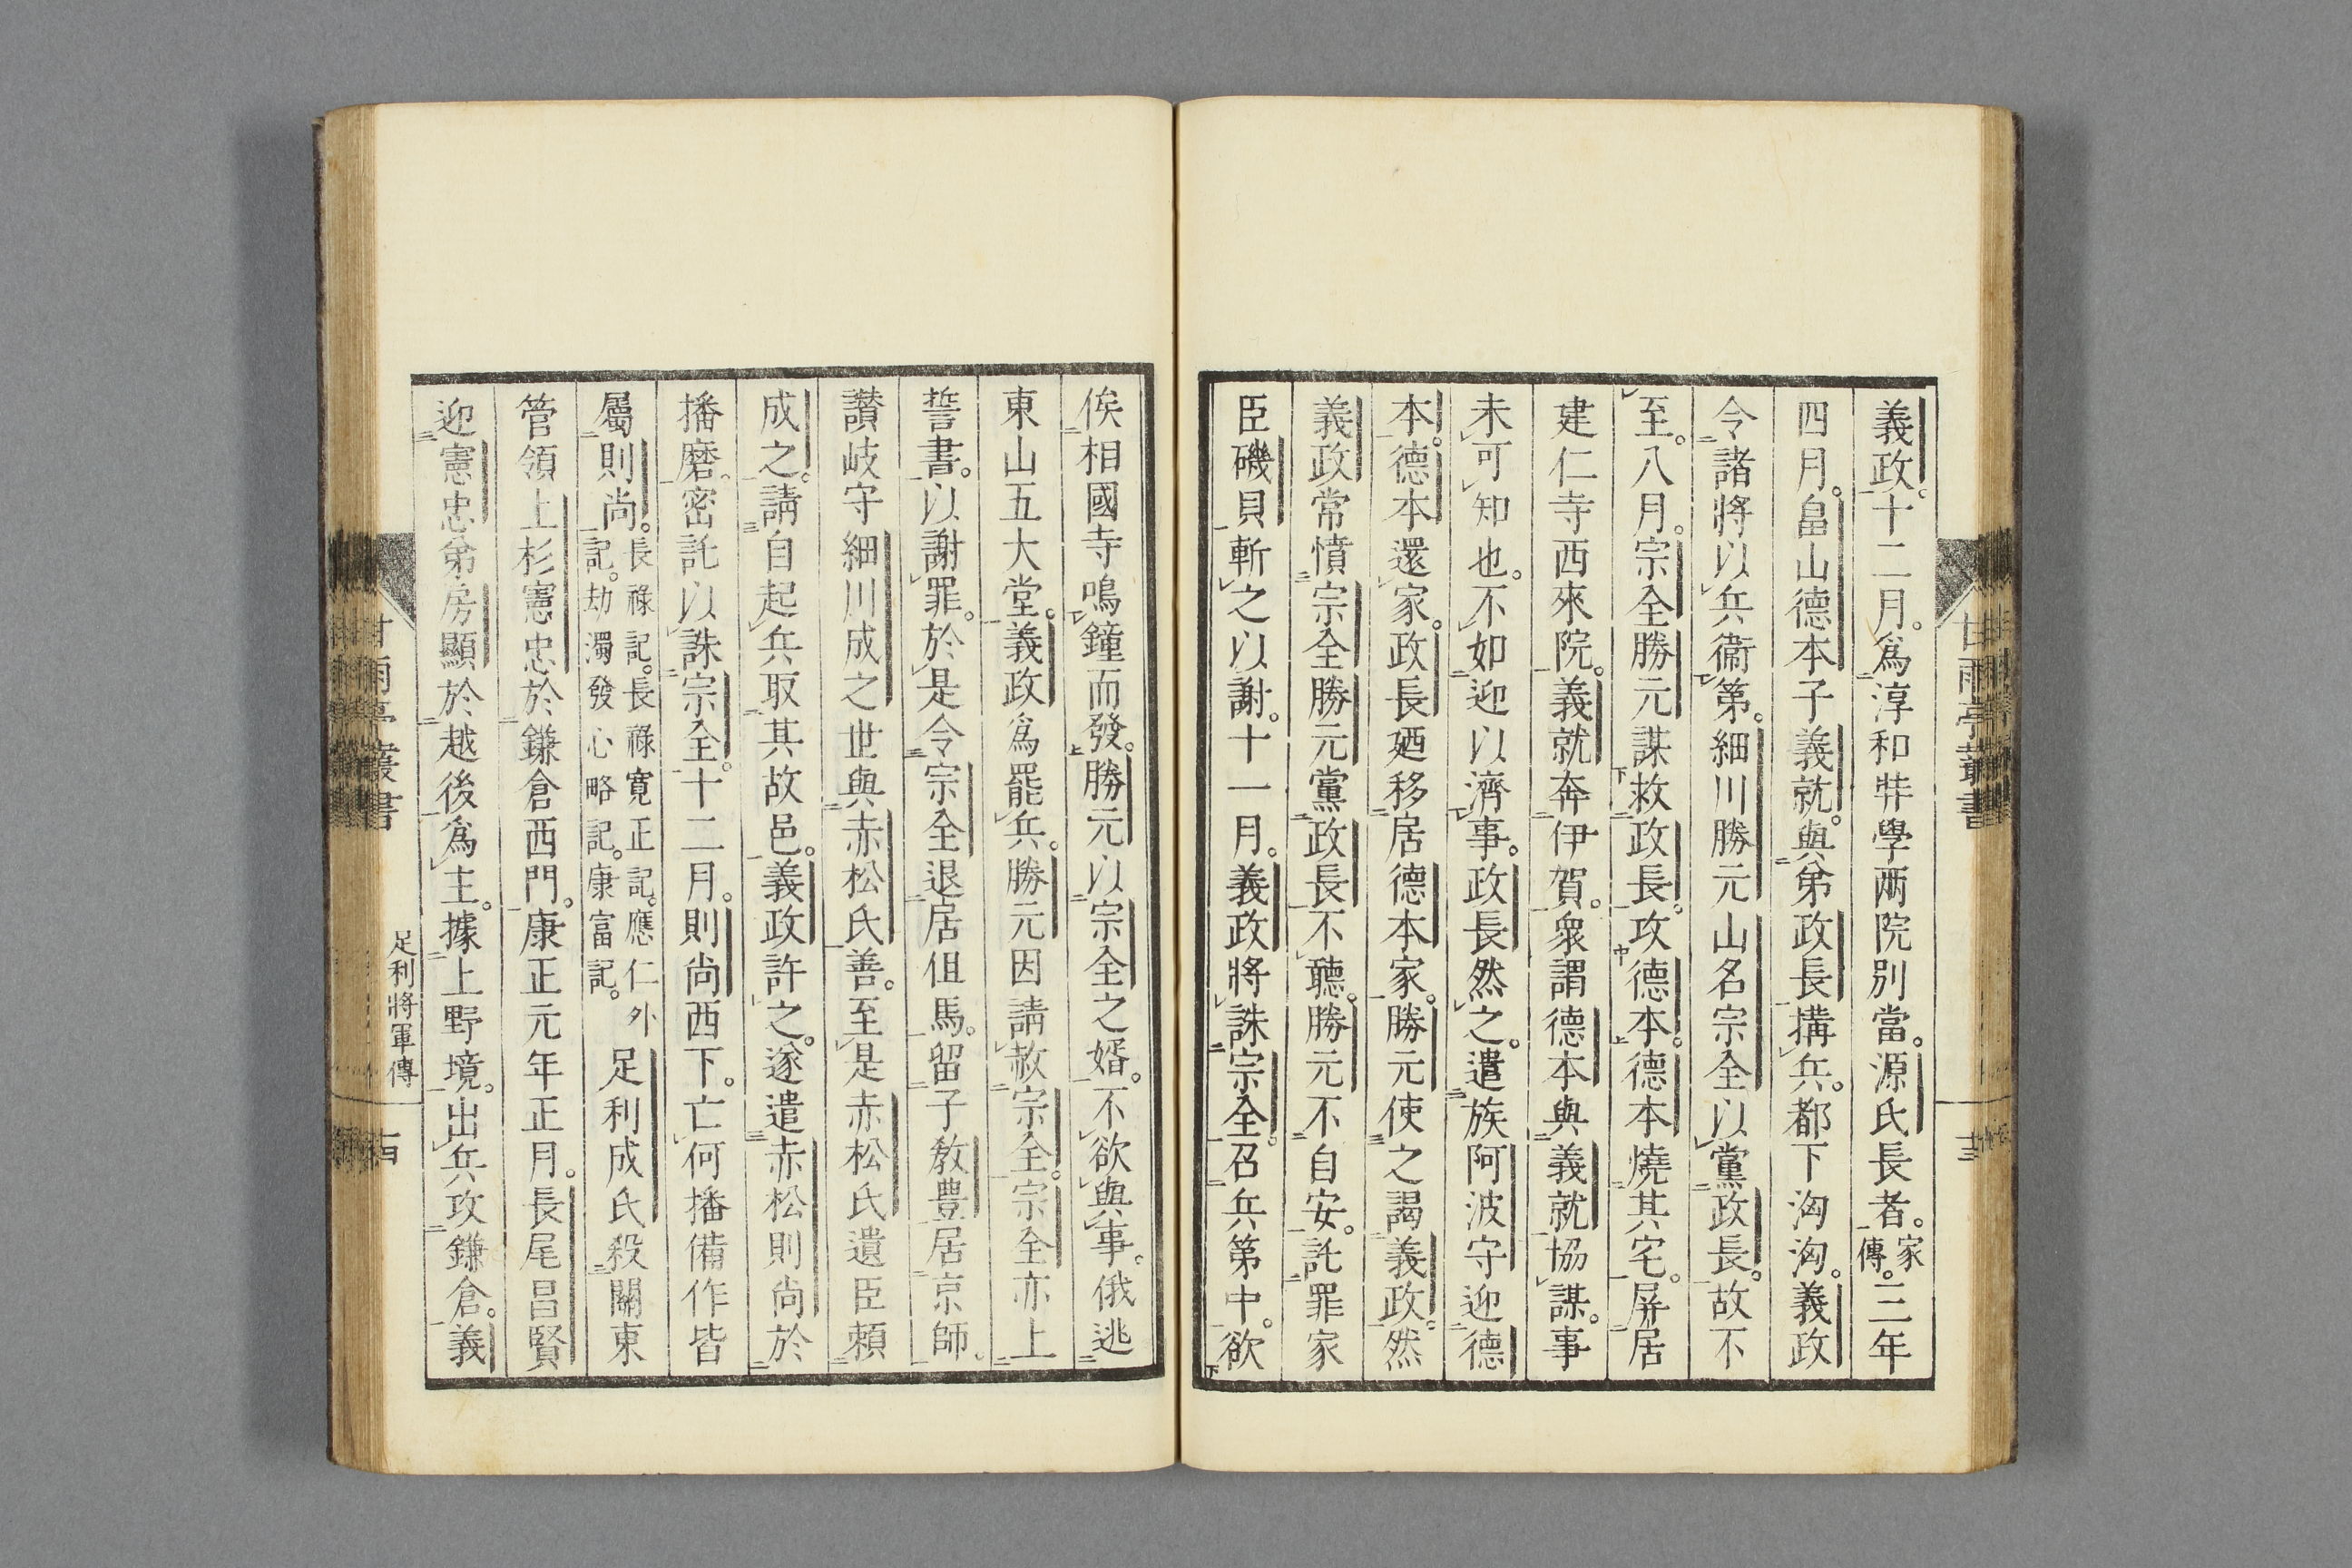 義政。十二月。爲淳和弉學兩院別當。源氏長者。家傳。三年
四月。畠山德本子義就。與弟政長搆兵。都下洶洶。義政
令諸將以兵衞第。細川勝元山名宗全以黨政長。故不
至。八月。宗全勝元謀救政長。攻德本。德本燒其宅。屏居
建仁寺西來院。義就奔伊賀。衆謂德本與義就協謀。事
未可知也。不如迎以濟事。政長然之。遣族阿波守迎德
本。德本還家。政長廼移居德本家。勝元使之謁義政。然
義政常憤宗全勝元黨政長不聽。勝元不自安。託罪家
臣磯貝斬之以謝。十一月。義政將誅宗全。召兵第中。欲
俟相國寺鳴鐘而發。勝元以宗全之婿。不欲與事。俄逃
東山五大堂。義政爲罷兵。勝元因請赦宗全。宗全亦上
誓書。以謝罪。於是令宗全退居伹馬。留子教豊居京師。
讃岐守細川成之世與赤松氏善。至是赤松氏遺臣頼
成之。請自起兵取其故邑。義政許之。遂遣赤松則尚於
播磨。密託以誅宗全。十二月。則尚西下。亡何播備作皆
屬則尚。長祿記。長祿寛正記。應仁外記。劫濁發心略記。康富記。足利成氏殺關東
管領上杉憲忠於鎌倉西門。康正元年正月。長尾昌賢
迎憲忠弟房顯於越後爲主。據上野境。出兵攻鎌倉。義
足利將軍傳
甘雨亭叢書